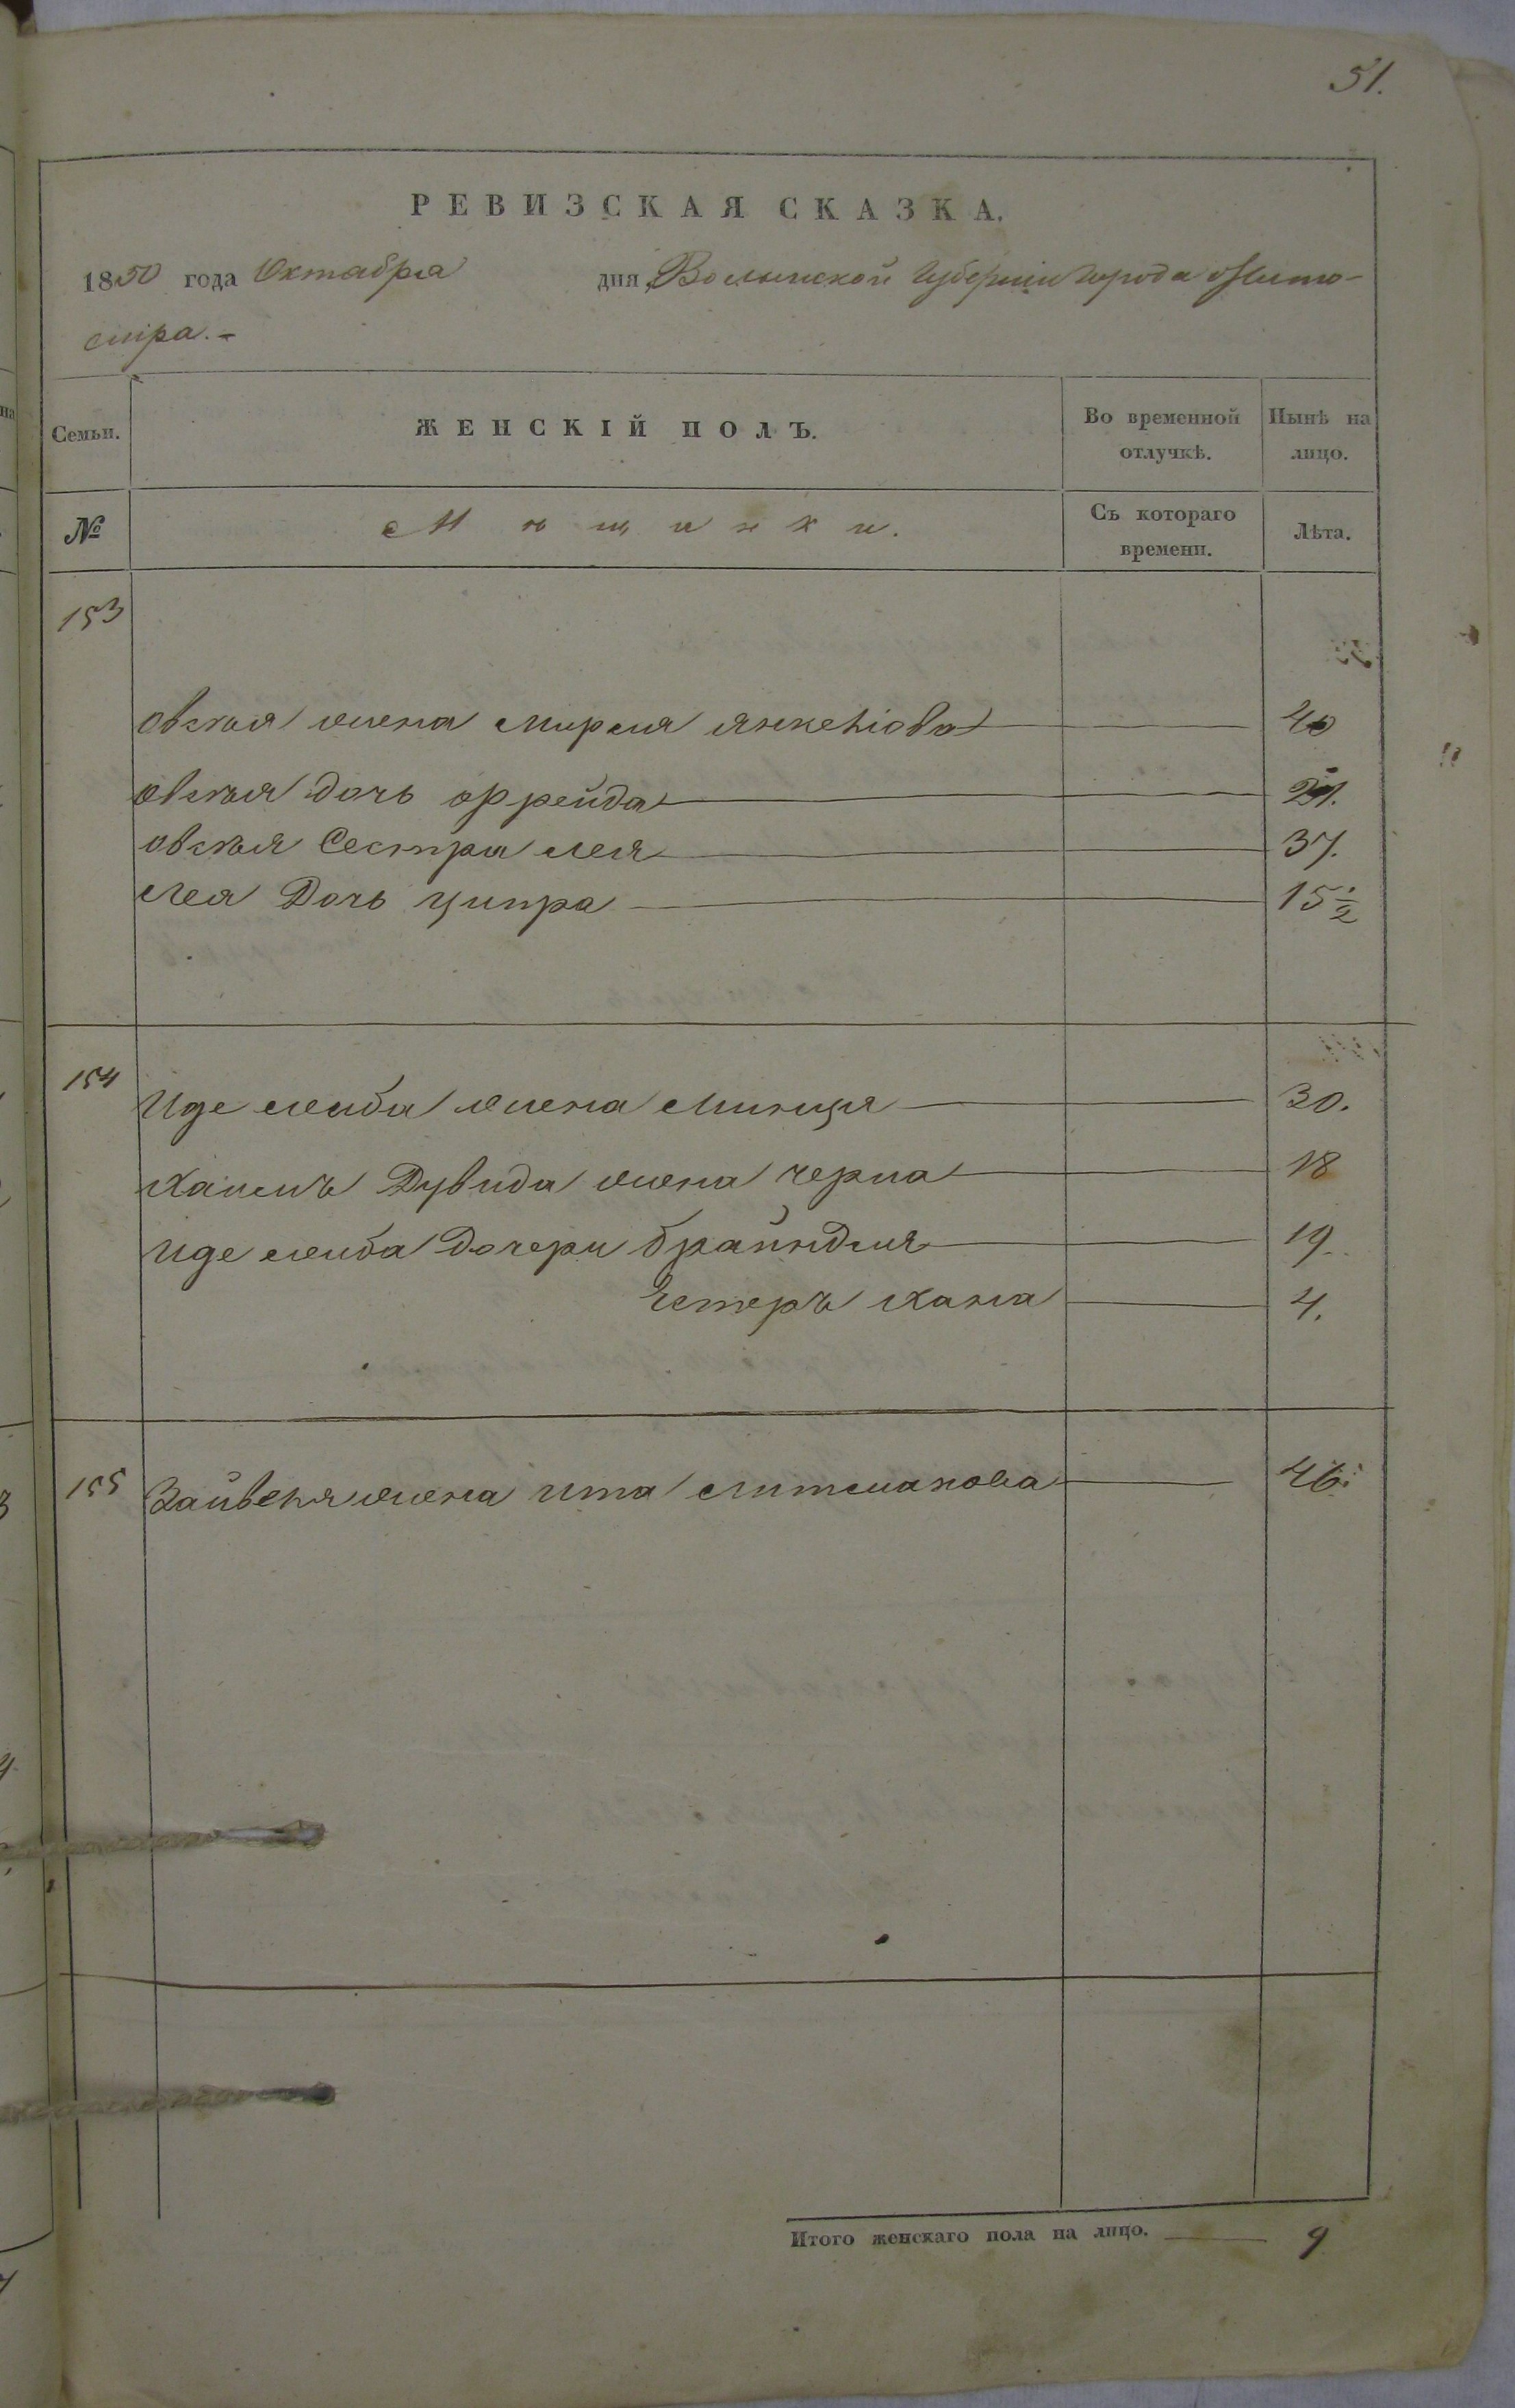 51.
РЕВИЗСКАЯ СКАЗКА.
1850 года Октабра дня Волынской Губерніи города Жито-
міра.-
Семьи.
ЖЕНСКІЙ ПОЛЪ.
Во временной отлучкѣ.
Нынѣ на лицо.
№
Мѣщанки.
Съ котораго времени.
Лѣта.
153
Овсѣя жена Мирля Янкеліова 40
Овсѣя дочь Фрейда
Овсѣя Сестра Лея 37.
Леи Дочь Ципра 15½
154
Ице Лейба жена Минця 30.
Хаимъ Дувида жена Черна 18
Ице Лейба Дочери Брайндля 19.
Естеръ Хана 4.
155
Зайвеля жена Ита Литманова 46.
Итого женскаго пола на лицо. 9